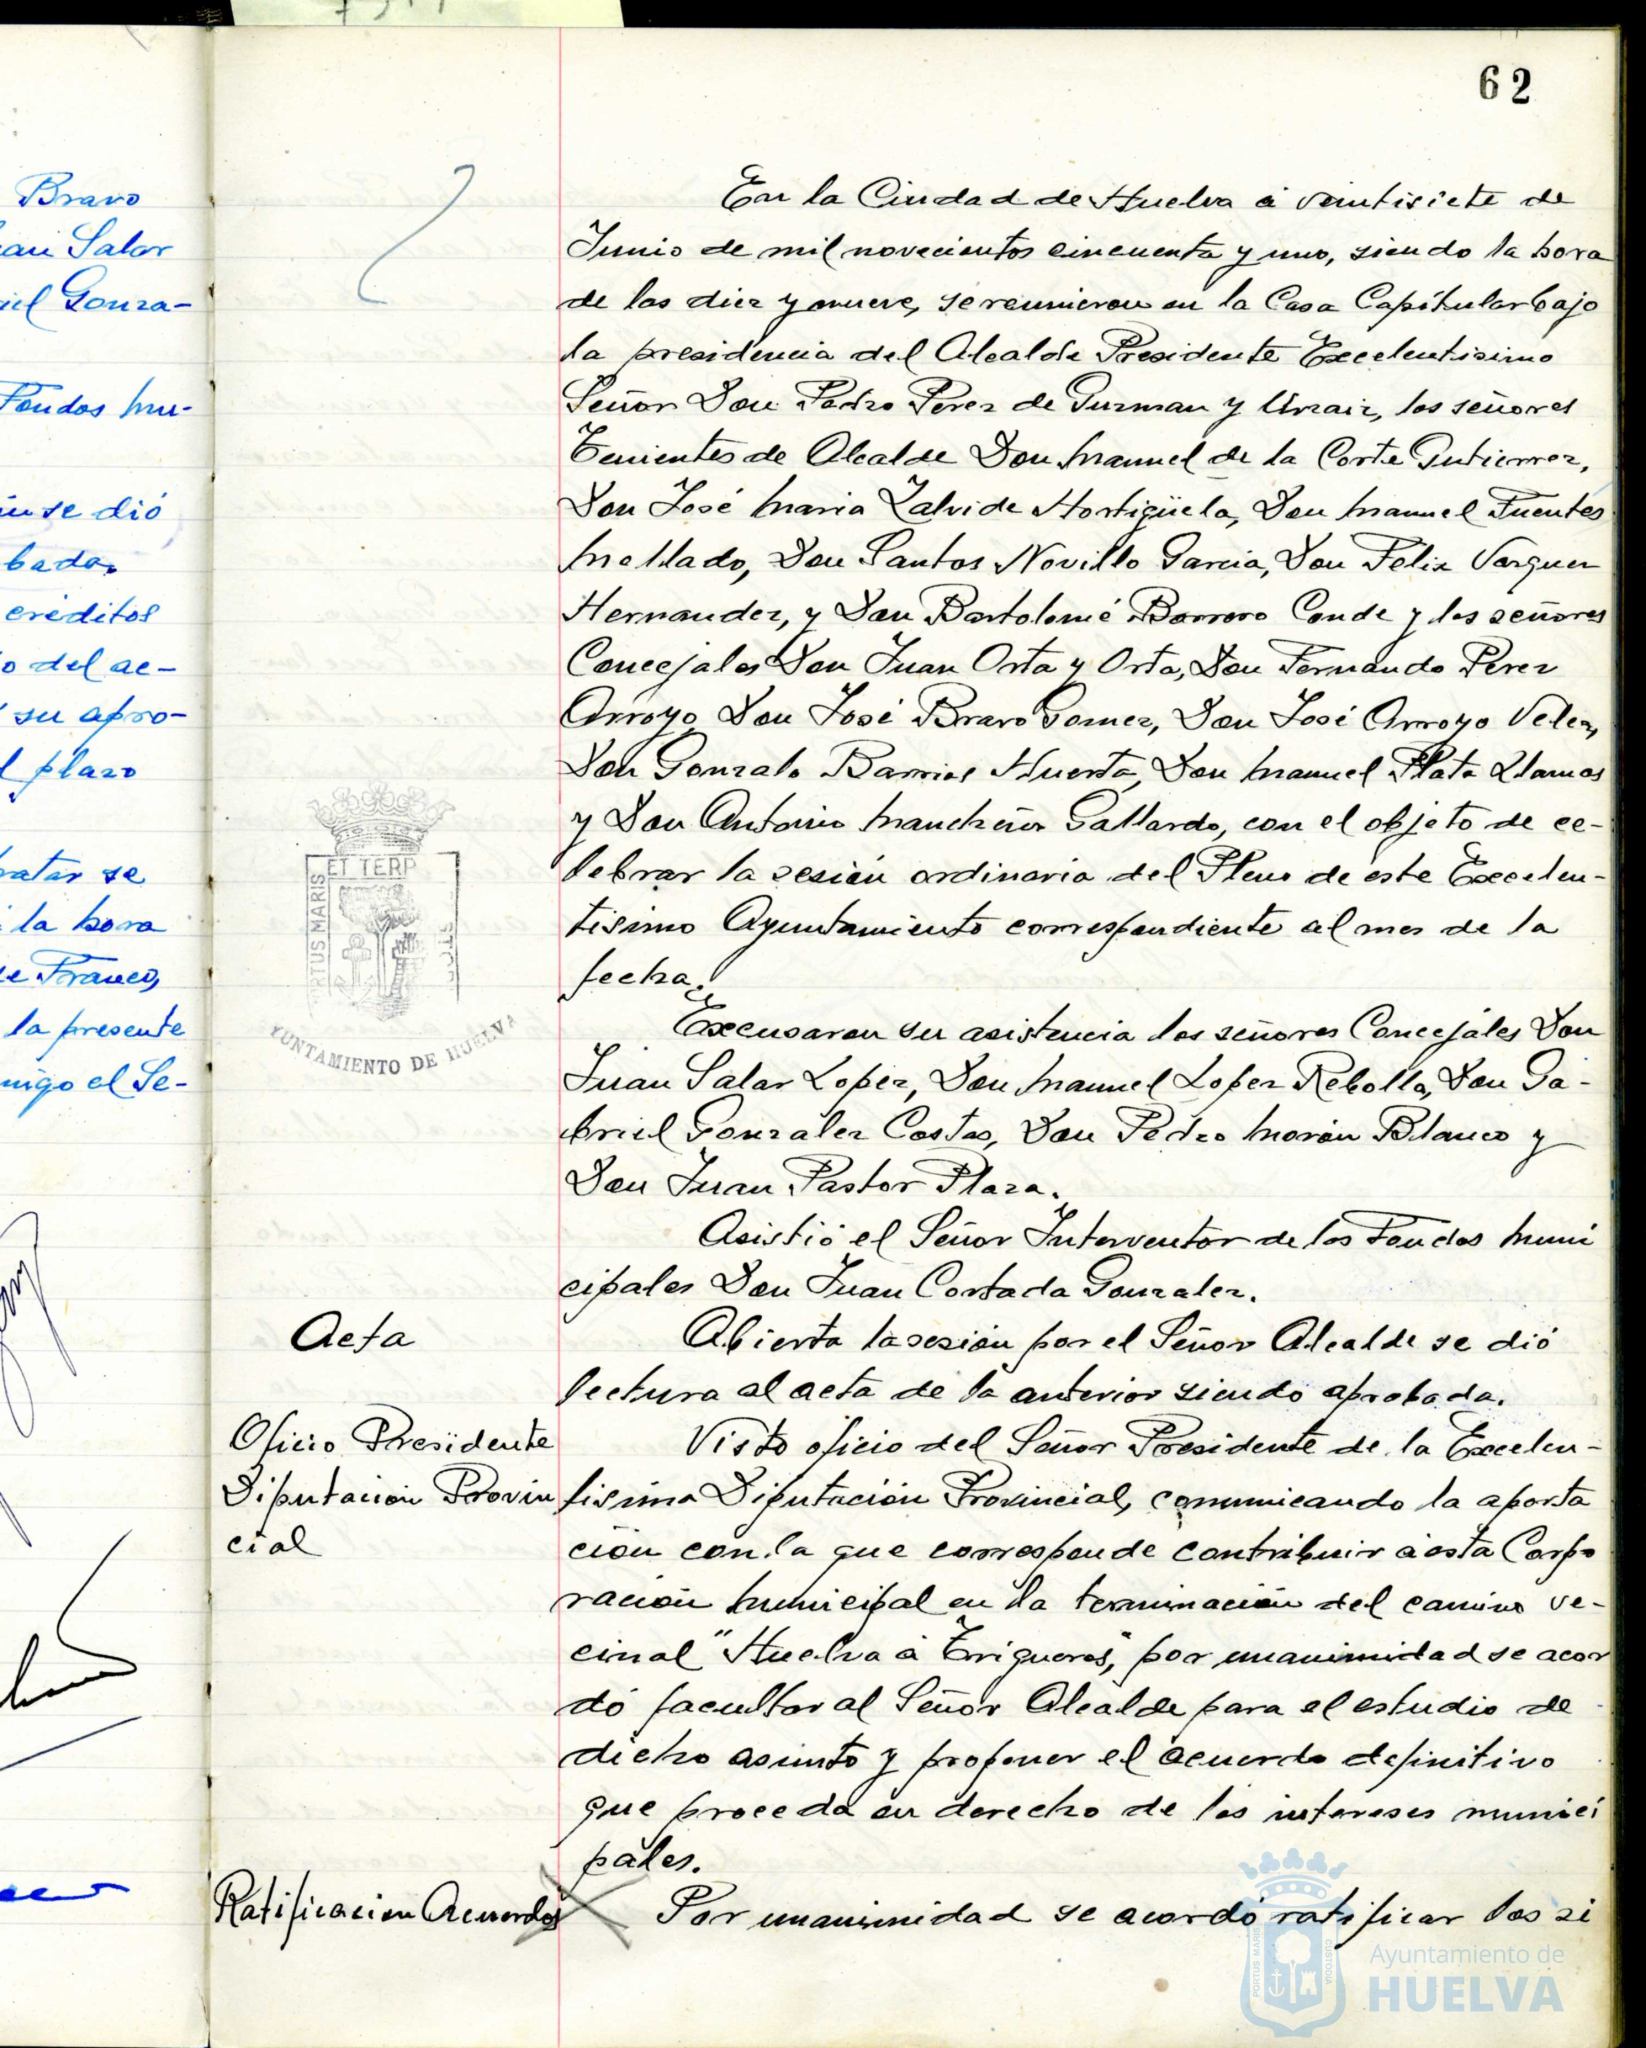 62
Bravo
Salor
Gonza-
Fondos mu-
se dió
bada.
créditos
del ac-
su apro-
plazo
tratar se
la hora
de Franco,
la presente
migo el Se-
En la Ciudad de Huelva a veintisiete de
Junio de mil novecientos cincuenta y uno, siendo la hora
de las diez y nueve, se reunieron en la Casa Capitular bajo
la presidencia del Alcalde Presidente Excelentisimo
Señor Don Pedro Perez de Guzman y Urzaiz, los señores
Tenientes de Alcalde Don Manuel de la Corte Gutierrez,
Don José Maria Zalvide Hortigüela, Don Manuel Fuentes
Mellado, Don Santos Novillo Garcia, Don Felix Vazquez
Hernandez, y Don Bartolomé Borrero Conde y los señores
Concejales Don Juan Orta y Orta, Don Fernando Perez
Arroyo, Don José Bravo Gomez, Don José Arroyo Velez,
Don Gonzalo Barrios Huerta, Don Manuel Plata Llamas
y Don Antonio Mancheño Gallardo, con el objeto de ce-
lebrar la sesión ordinaria del Pleno de este Excelen-
tisimo Ayuntamiento correspondiente al mes de la
fecha.
Excusaron su asistencia los señores Concejales Don
Juan Salar Lopez, Don Manuel Lopez Rebollo, Don Ga-
briel Gonzalez Costas, Don Pedro Morón Blanco y
Don Juan Pastor Plaza.
Asistió el Señor Interventor de los Fondos muni
cipales Don Juan Cortada Gonzalez.
Acta
Abierta la sesión por el Señor Alcalde se dió
lectura al acta de la anterior siendo aprobada.
Oficio Presidente
Diputación Provin
cial
Visto oficio del Señor Presidente de la Excelen-
tisima Diputación Provincial, comunicando la aporta
ción con la que corresponde contribuir a esta Corpo
ración municipal en la terminación del camino ve-
cinal "Huelva a Trigueros", por unanimidad se acor
dó facultar al Señor Alcalde para el estudio de
dicho asunto y proponer el acuerdo definitivo
que proceda en derecho de los intereses munici
pales.
Ratificacion Acuerdos
Por unanimidad se acordó ratificar los si
ET TERR
PORTUS MARIS
YUNTAMIENTO DE HUELVA
PORTUS MARIS
CUSTODIA
Ayuntamiento de
HUELVA